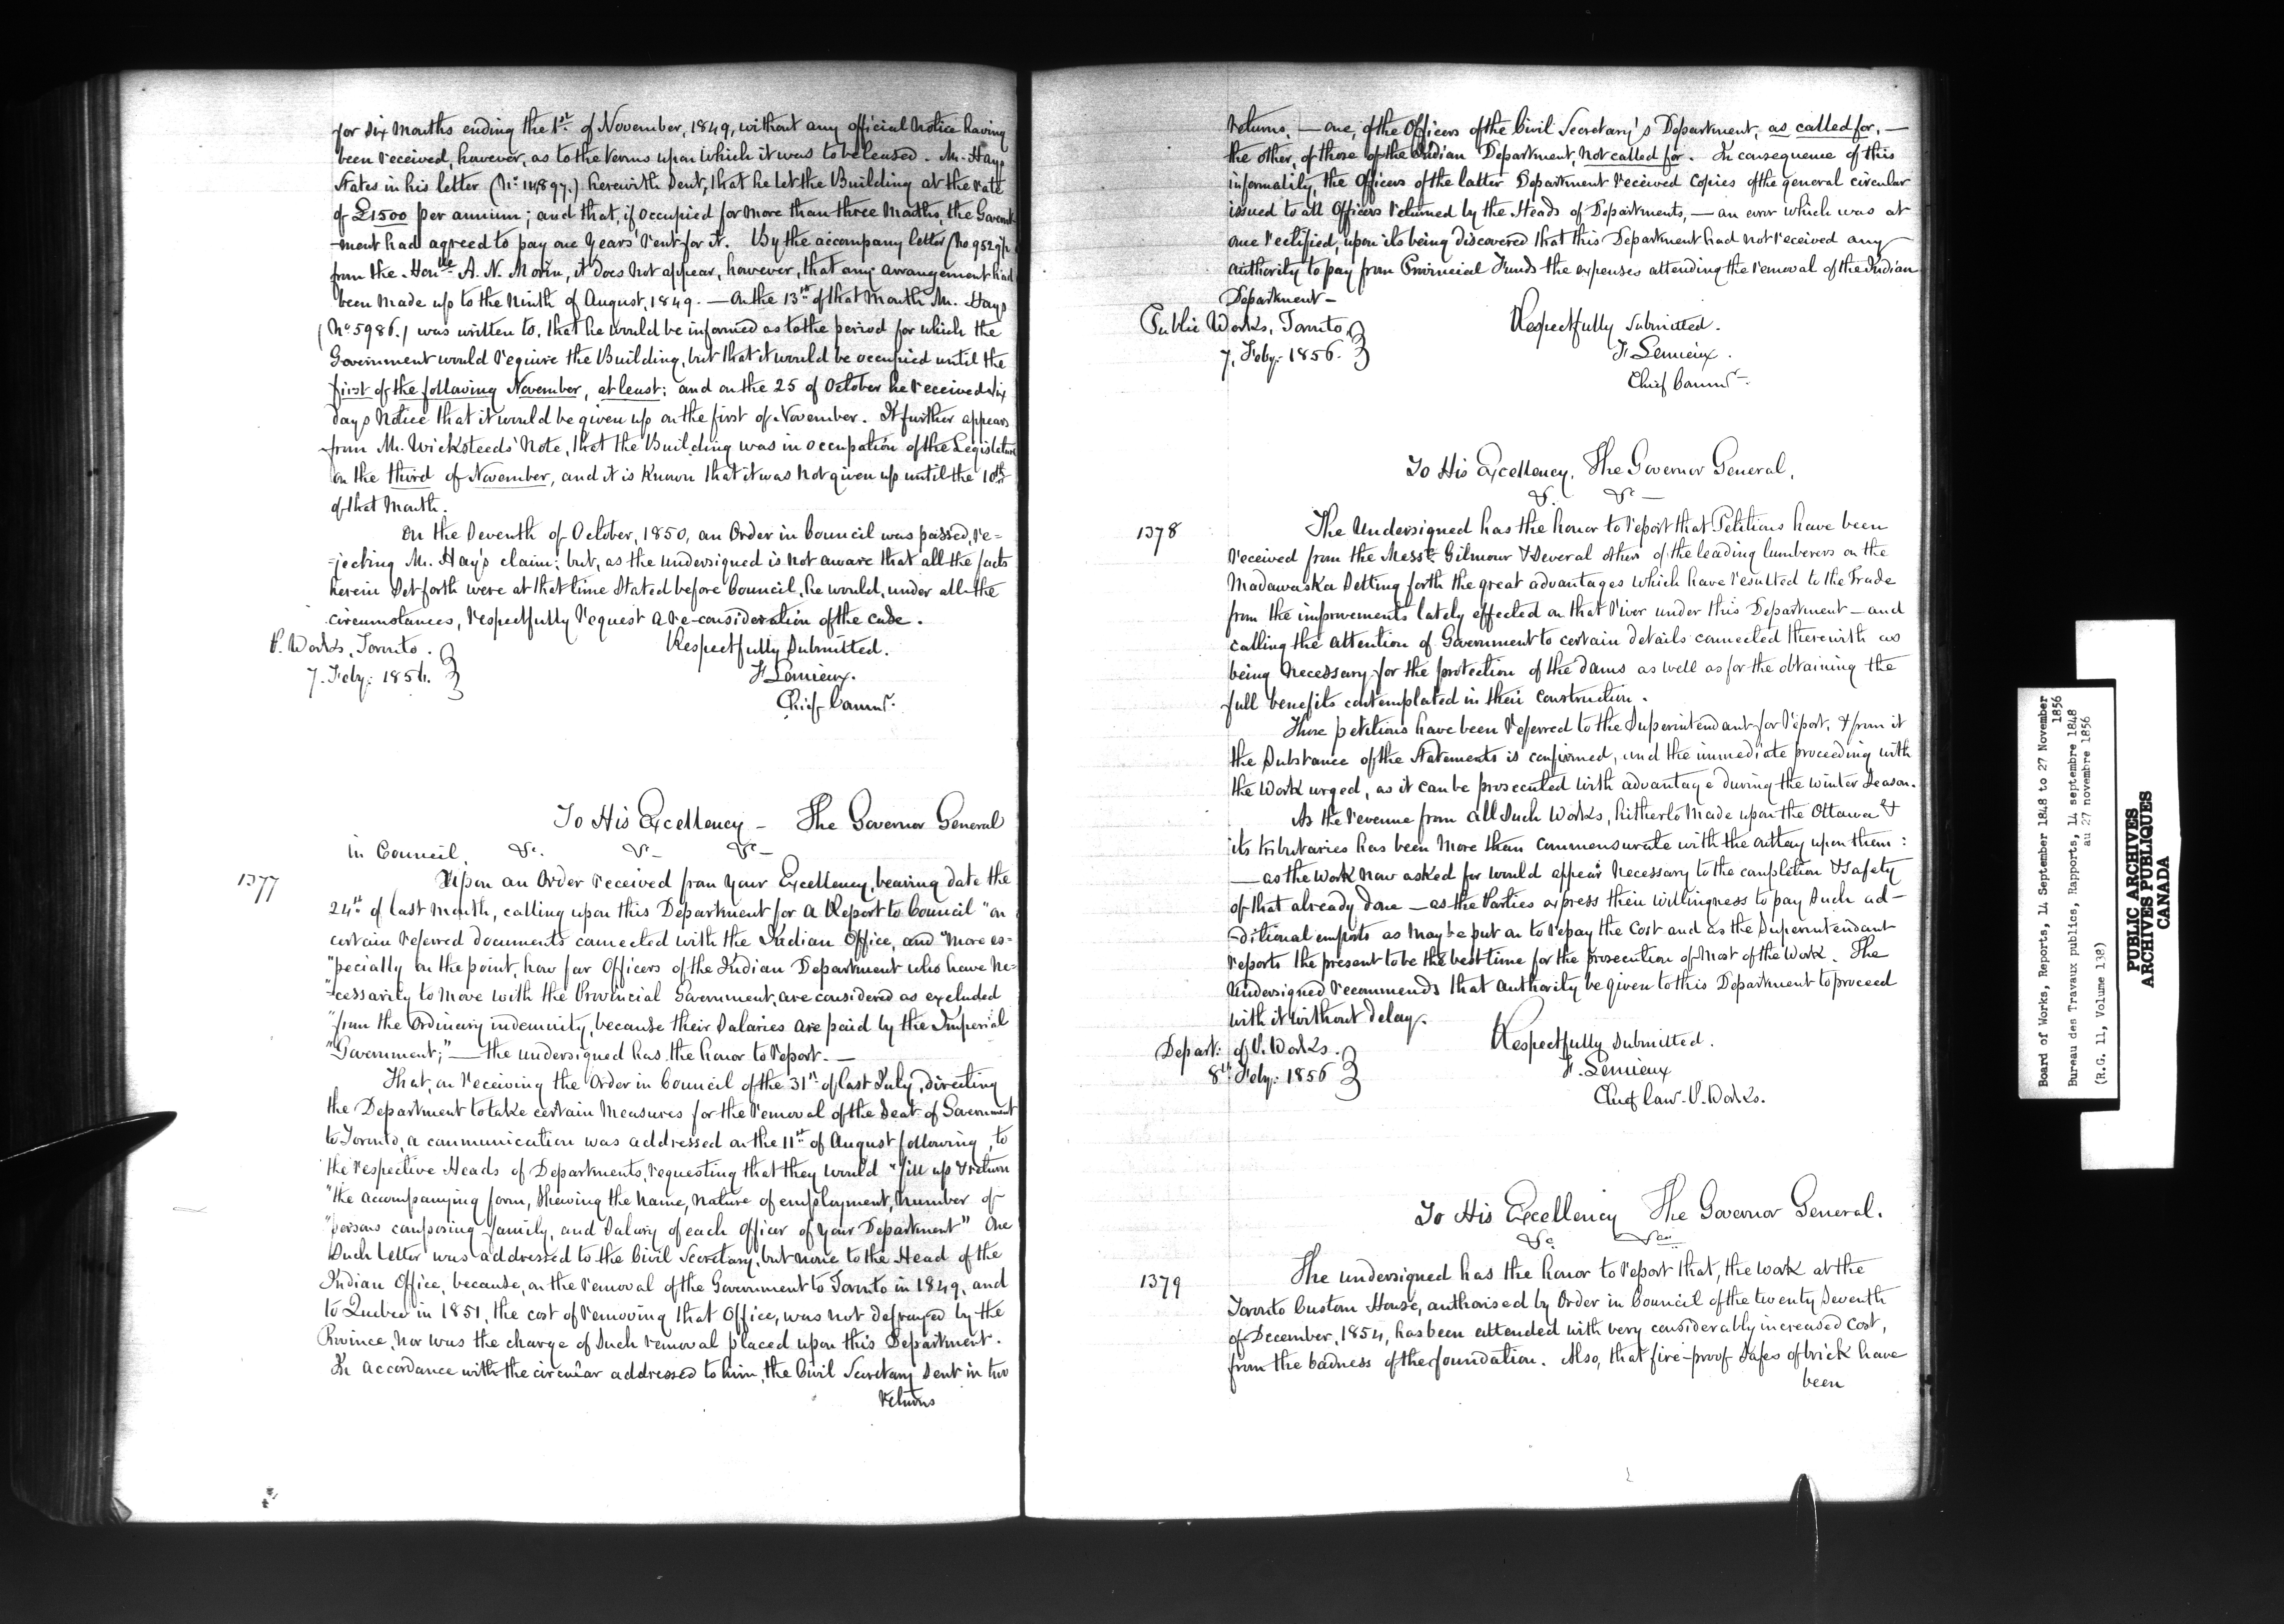 for six Months ending the 1st of November, 1849, without any official notice having
been received, however, as to the terms upon which it was to be leased. Mr. Hays
States in his letter (No. 14897.) herewith sent, that he let the Building at the rate
of £1500 per annum; and that, if occupied for more than three Months, the Govern-
-ment had agreed to pay one Years' rent for it. By the accompany letter (No 9529/
from the Honble A. N. Morin, it does not appear, however, that any arrangement had
been made up to the Ninth of August, 1849. — On the 13th of that Month Mr. Hays
(No 5986.) was written to, that he would be informed as to the period for which the
Government would require the Building, but that it would be occupied until the
first of the following November, at least: and on the 25 of October he received six
days Notice that it would be given up on the first of November. It further appears
from Mr. Wicksteeds' Note, that the Building was in occupation of the Legislature
on the third of November, and it is known that it was not given up until the 10th
of that Month.
On the Seventh of October, 1850, an Order in Council was passed, re=
=jecting Mr. Hay's claim: but, as the undersigned is not aware that all the facts
herein set forth were at that time stated before Council, he would, under all the
circumstances, respectfully request a re-consideration of the case.
P. Works, Toronto.
7. Feby: 1856.
Respectfully submitted.
F. Lemieux.
Chief Commr.
To His Excellency — The Governor General
in Council, &c. &c — &c —
1377
Upon an Order received from Your Excellency, bearing date the
24th of last Month, calling upon this Department for a Report to Council "on
certain referred documents connected with the Indian Office, and "more es=
"pecially on the point, how far Officers of the Indian Department who have ne=
"cessarily to move with the Provincial Government, are considered as excluded
"from the Ordinary indemnity, because their Salaries are paid by the Imperial
"Government;" — the undersigned has the honor to report. —
That, on receiving the Order in Council of the 31st of last July, directing
the Department to take certain Measures for the removal of the Seat of Government
to Toronto, a communication was addressed on the 11th of August following, to
the respective Heads of Departments, requesting that they would "fill up & return
"the accompanying form, shewing the Name, nature of employment, Number of
"persons composing family, and Salary of each Officer of your Department" One
such letter was addressed to the Civil Secretary, but none to the Head of the
Indian Office, because, on the removal of the Government to Toronto in 1849, and
to Quebec in 1851, the cost of removing that Office, was not defrayed by the
Province, nor was the charge of such removal placed upon this Department.
In accordance with the circular addressed to him, the Civil Secretary sent in two
returns
returns, — one, of the Officers of the Civil Secretary's Department, as called for, —
the other, of those of the Indian Department, not called for. In consequence of this
informality, the Officers of the latter Department received Copies of the general circular
issued to all Officers returned by the Heads of Departments, — an error which was at
once rectified, upon its being discovered that this Department had not received any
authority to pay from Provincial Funds the expenses attending the removal of the Indian
Department —
Public Works, Toronto,
7, Feby: 1856.
Respectfully submitted.
F. Lemieux.
Chief Commr.
To His Excellency, The Governor General,
&c. &c —
1378
The Undersigned has the honor to report that Petitions have been
received from the Messrs Gilmour & several others of the leading lumberers on the
Madawaska setting forth the great advantages which have resulted to the Trade
from the improvements lately effected on that River under this Department — and
calling the attention of Government to certain details connected therewith as
being necessary for the protection of the dams as well as for the obtaining the
full benefits contemplated in their construction.
These petitions have been referred to the Superintendant for report, & from it
the substance of the statements is confirmed, and the immediate proceeding with
the work urged, as it can be prosecuted with advantage during the winter season.
As the revenue from all such Works, hitherto made upon the Ottawa &
its tributaries has been more than commensurate with the outlay upon them:
— as the work now asked for would appear necessary to the completion & safety
of that already done — as the Parties express their willingness to pay such ad-
-ditional imposts as may be put on to repay the cost and as the Superintendant
reports the present to be the best time for the prosecution of most of the work. The
Undersigned recommends that authority be given to this Department to proceed
with it without delay.
Depart: of P. Works.
8th Feby: 1856
Respectfully submitted.
F. Lemieux
Chief Com. P. Works.
To His Excellency The Governor General.
&c.
1379
The undersigned has the honor to report that, the work at the
Toronto Custom House, authorised by Order in Council of the twenty seventh
of December, 1854, has been attended with very considerably increased cost,
from the badness of the foundation. Also, that fire-proof safes of brick have
been
Board of Works, Reports, 14 September 1848 to 27 November
1856
Bureau des Travaux publics, Rapports, 14 septembre 1848
au 27 novembre 1856
(R.G. 11, Volume 138)
PUBLIC ARCHIVES
ARCHIVES PUBLIQUES
CANADA